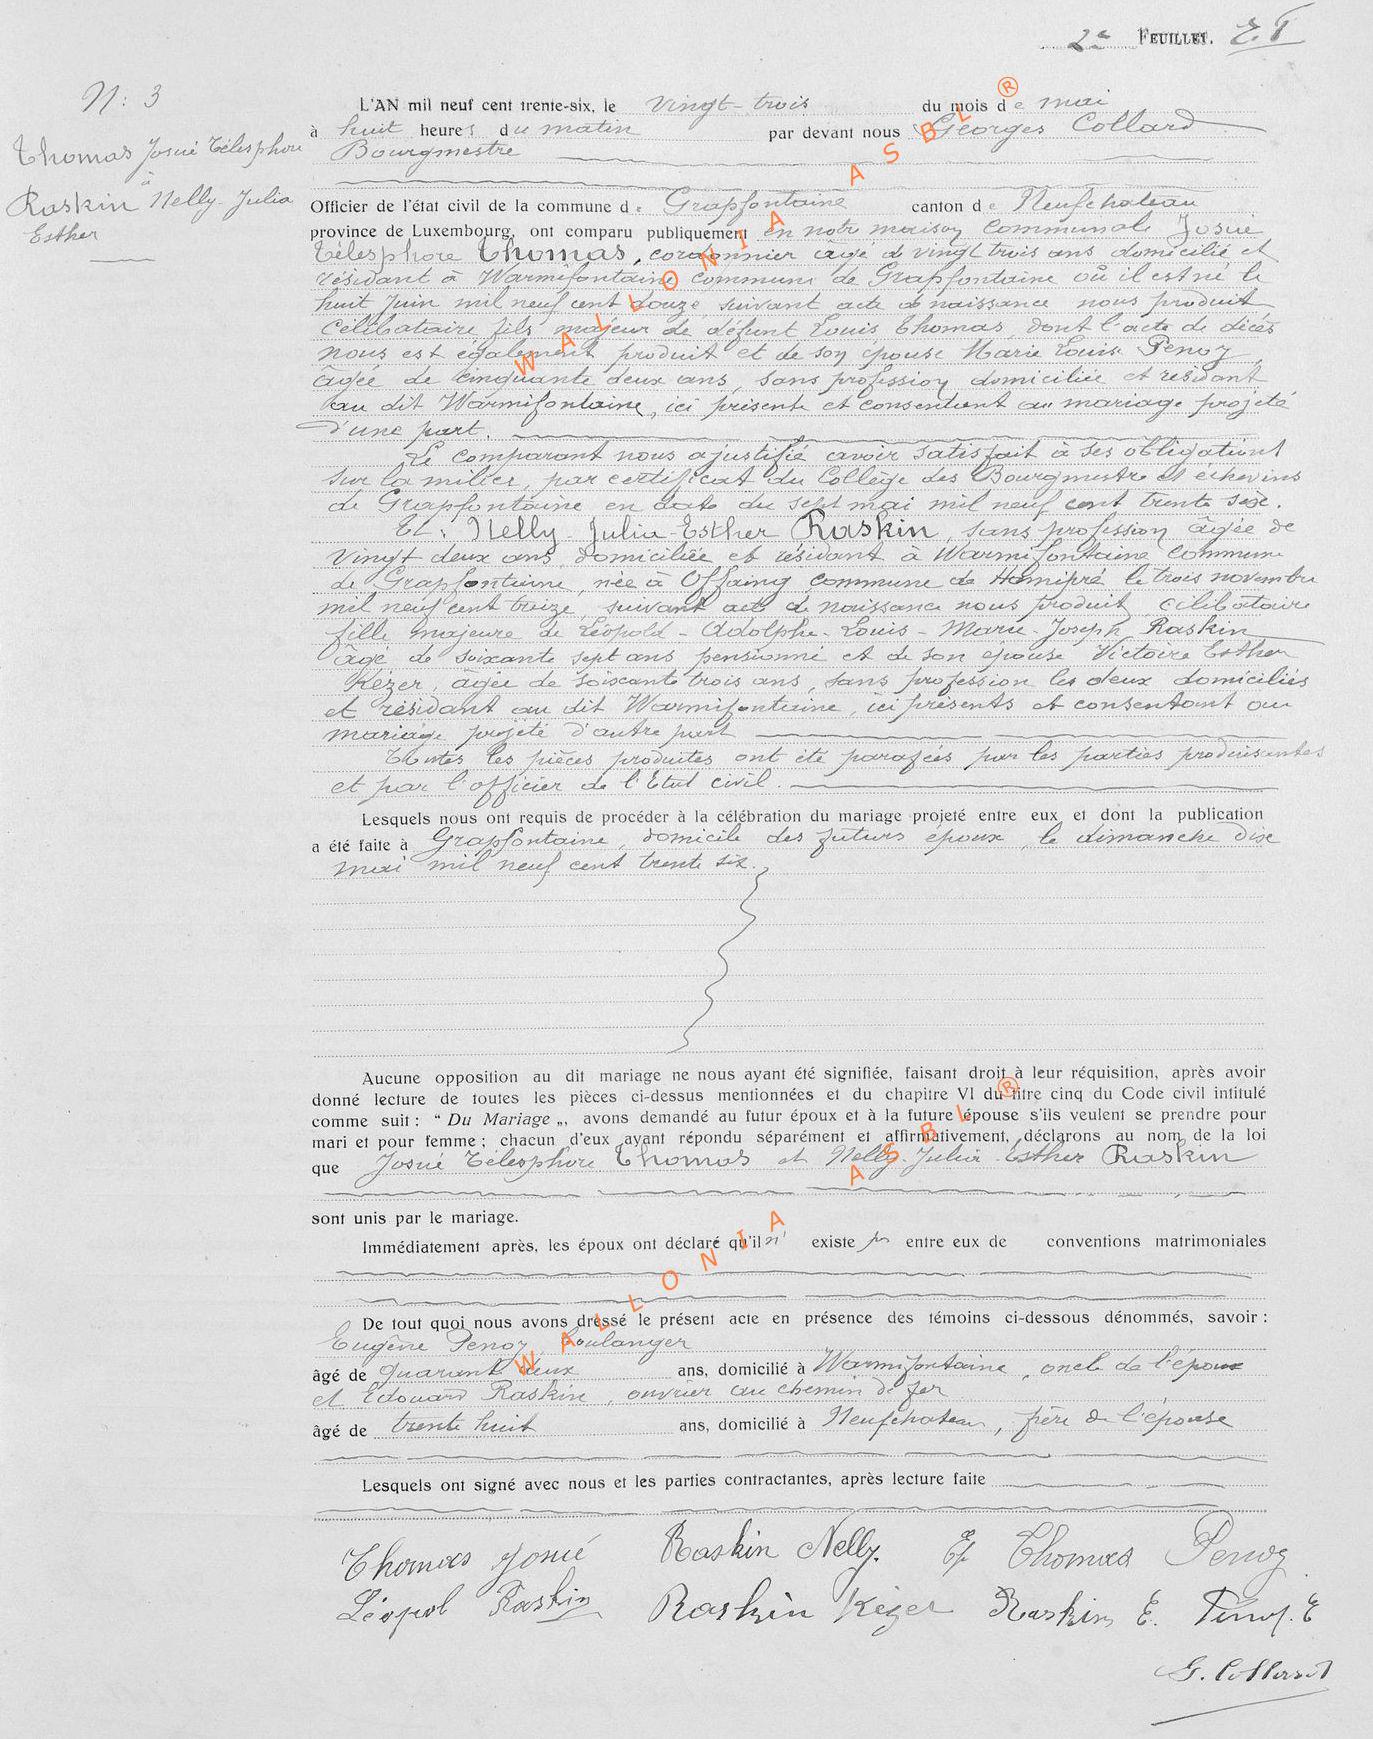 2e FEUILLET. E.T
N: 3
Thomas Josué Télesphore
à
Raskin Nelly-Julia
Esther
L'AN mil neuf cent trente-six, le vingt-trois du mois de mai
à huit heures du matin par devant nous Georges Collard
Bourgmestre
Officier de l'état civil de la commune de Grapfontaine canton de Neufchateau
province de Luxembourg, ont comparu publiquement en notre maison communale Josué
Télesphore Thomas, cordonnier âgé de vingt trois ans domicilié et
résidant à Warmifontaine commune de Grapfontaine où il est né le
huit juin mil neuf cent douze suivant acte de naissance nous produit
célibataire fils majeur de défunt Louis Thomas dont l'acte de décès
nous est également produit et de son épouse Marie Louise Penoy
âgée de cinquante deux ans, sans profession domiciliée et résidant
au dit Warmifontaine, ici présente et consentant au mariage projeté
d'une part.
Le comparant nous a justifié avoir satisfait à ses obligations
sur la milice, par certificat du Collège des Bourgmestre et échevins
de Grapfontaine en date du sept mai mil neuf cent trente six.
Et: Nelly-Julia-Esther Raskin, sans profession âgée de
vingt deux ans, domiciliée et résidant à Warmifontaine commune
de Grapfontaine, née à Offaing commune de Hamipré le trois novembre
mil neuf cent treize, suivant acte de naissance nous produit célibataire
fille majeure de Léopold-Adolphe-Louis-Marie-Joseph Raskin
âgé de soixante sept ans pensionné et de son épouse Victoire Esther
Kézer, âgée de soixante trois ans, sans profession les deux domiciliés
et résidant au dit Warmifontaine, ici présents et consentant au
mariage projeté d'autre part
Toutes les pièces produites ont été parafées par les parties produisantes
et par l'officier de l'Etat civil.
Lesquels nous ont requis de procéder à la célébration du mariage projeté entre eux et dont la publication
a été faite à Grapfontaine, domicile des futurs époux, le dimanche dix
mai mil neuf cent trente six.
Aucune opposition au dit mariage ne nous ayant été signifiée, faisant droit à leur réquisition, après avoir
donné lecture de toutes les pièces ci-dessus mentionnées et du chapitre VI du titre cinq du Code civil intitulé
comme suit : “ Du Mariage „, avons demandé au futur époux et à la future épouse s'ils veulent se prendre pour
mari et pour femme ; chacun d'eux ayant répondu séparément et affirmativement, déclarons au nom de la loi
que Josué Télesphore Thomas et Nelly-Julia-Esther Raskin
sont unis par le mariage.
Immédiatement après, les époux ont déclaré qu'il n' existe pas entre eux de conventions matrimoniales
De tout quoi nous avons dressé le présent acte en présence des témoins ci-dessous dénommés, savoir :
Eugène Penoy boulanger
âgé de quarante deux ans, domicilié à Warmifontaine, oncle de l'époux
et Edouard Raskin, ouvrier au chemin de fer
âgé de trente huit ans, domicilié à Neufchateau, frère de l'épouse
Lesquels ont signé avec nous et les parties contractantes, après lecture faite
Thomas Josué Raskin Nelly. Ep Thomas Penoy
Léopol Raskin Raskin Kézer Raskin E. Penoy. E
G. Collard
WALLONIA ASBL ®
WALLONIA ASBL ®